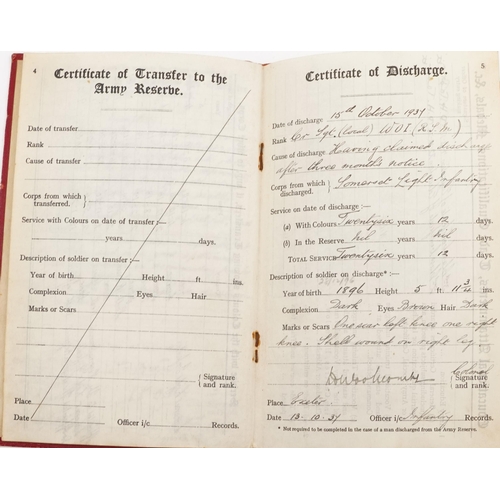 4
Certificate of Transfer to the
Army Reserve.
Date of transfer
Rank
Cause of transfer
Corps from which
transferred.
Service with Colours on date of transfer :—
years days.
Description of soldier on transfer :—
Year of birth Height ft ins.
Complexion Eyes Hair
Marks or Scars
Signature
and rank.
Place
Date Officer i/c Records.
5
Certificate of Discharge.
Date of discharge 15th October 1937
Rank Cr Sgt. (Local) WOI (R.S.M)
Cause of discharge Having claimed discharge
after three month's notice.
Corps from which
discharged. Somerset Light Infantry
Service on date of discharge :—
(a) With Colours Twentysix years 12 days.
(b) In the Reserve nil years nil days.
TOTAL SERVICE Twentysix years 12 days.
Description of soldier on discharge* :—
Year of birth 1896 Height 5 ft 11 3/4 ins.
Complexion Dark Eyes Brown Hair Dark
Marks or Scars One scar left knee one right
knee. Shell wound on right leg.
Colonel
Signature
and rank.
Place Exeter.
Date 13.10.37 Officer i/c Infantry Records.
* Not required to be completed in the case of a man discharged from the Army Reserve.